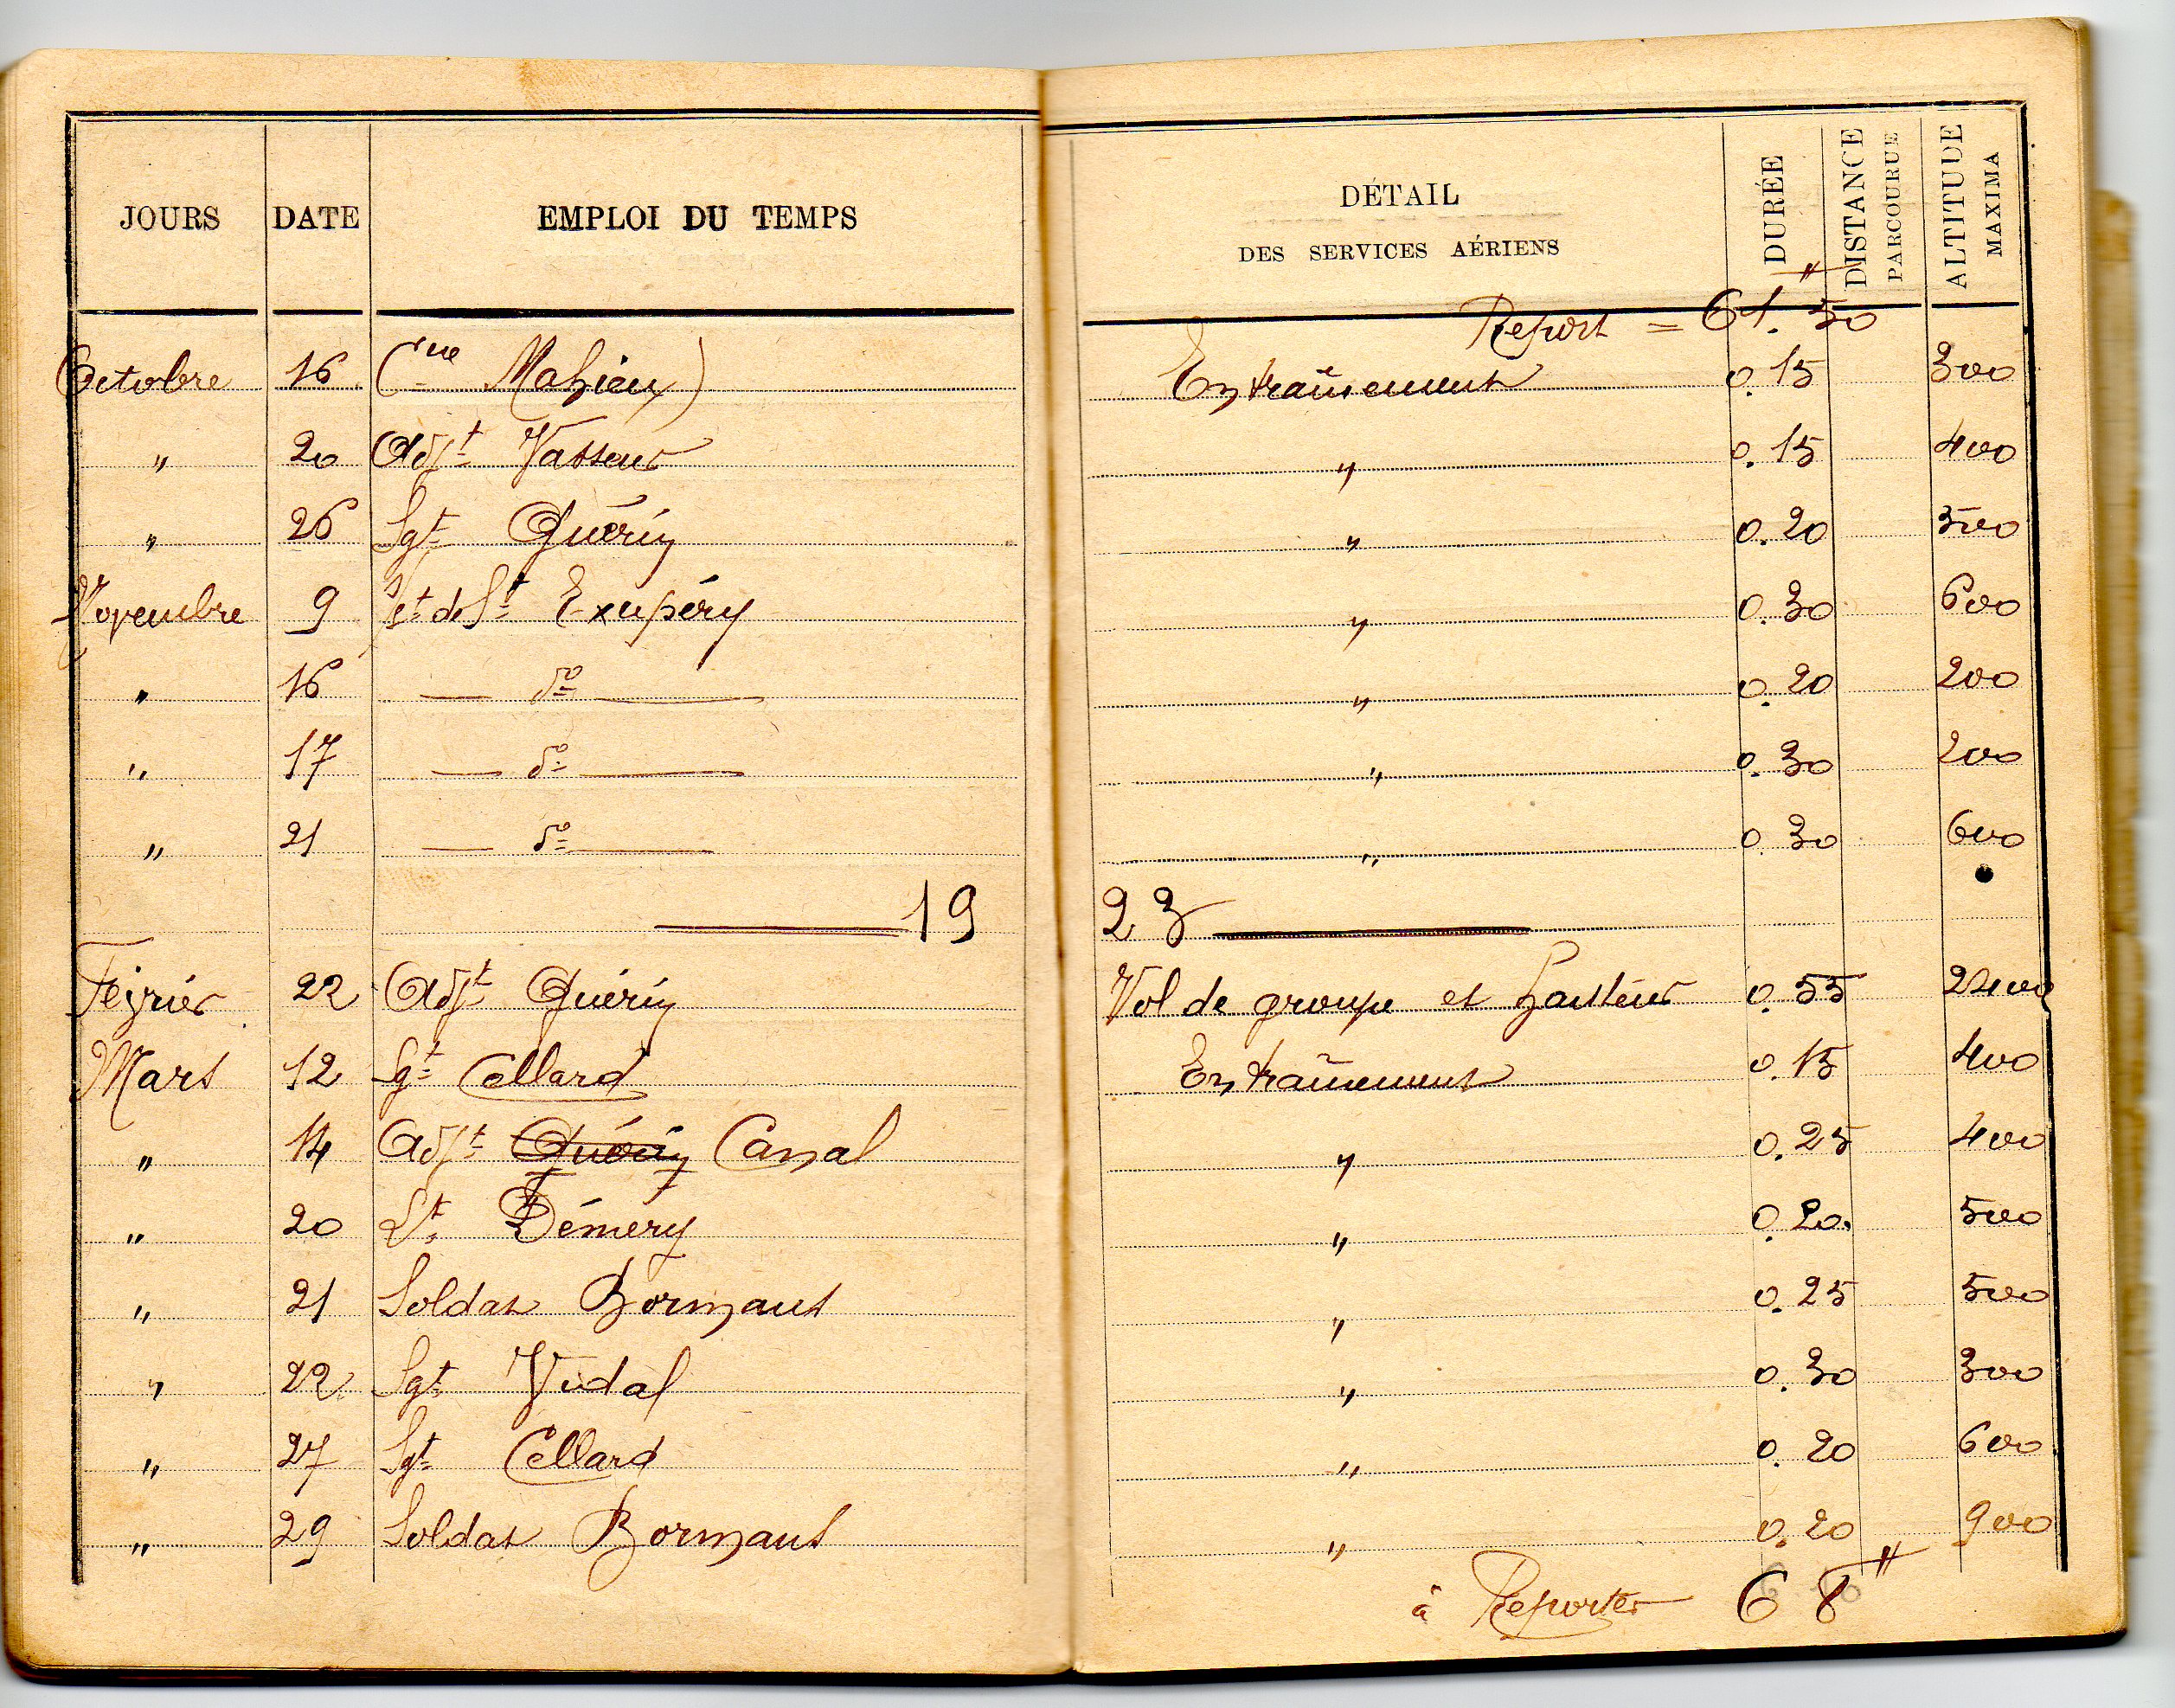 JOURS DATE EMPLOI DU TEMPS DÉTAIL DES SERVICES AÉRIENS DURÉE DISTANCE PARCOURUE ALTITUDE MAXIMA
Report = 61.50
Octobre 16 Mahieu) Entraînement 0.15 300
" 20 Adjt Vasseur " 0.15 400
" 26 Sgt Quérin " 0.20 500
Novembre 9 de St Exupéry " 0.30 600
" 16 — do — " 0.20 200
" 17 — do — " 0.30 200
" 21 — do — " 0.30 600
— 19 23 —
Février 22 Adjt Quérin Vol de groupe et hauteur 0.55 2400
Mars 12 Sgt Cellard Entraînement 0.15 400
" 14 Adjt Quérin Canal " 0.25 400
" 20 Lt Démery " 0.20. 500
" 21 Soldat Bormans " 0.25 500
" 22 Sgt Vidal " 0.30 300
" 27 Sgt Cellard " 0.20 600
" 29 Soldat Bormans " 0.20 900
à Reporter 68